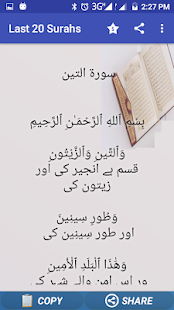 3G 2:27 PM
Last 20 Surahs
سورة التين
بِسْمِ ٱللَّهِ ٱلرَّحْمَٰنِ ٱلرَّحِيمِ
وَٱلتِّينِ وَٱلزَّيْتُونِ
قسم ہے انجیر کی اور
زیتون کی
وَطُورِ سِينِينَ
اور طور سینین کی
وَهَٰذَا ٱلْبَلَدِ ٱلْأَمِينِ
ور اس امن والے شہر کی
COPY
SHARE